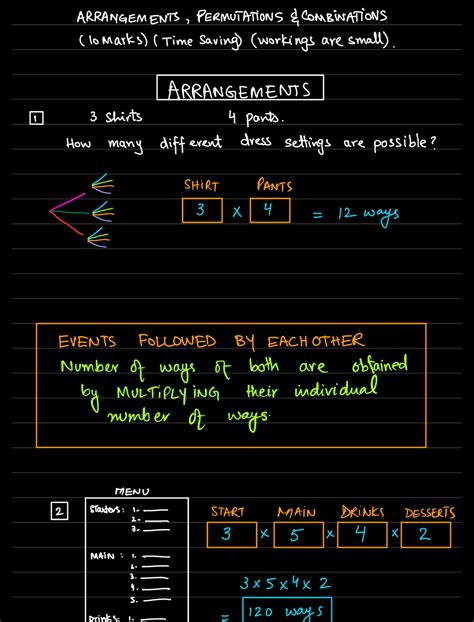 ARRANGEMENTS, PERMUTATIONS & COMBINATIONS
(10 Marks) (Time Saving) (workings are small).
ARRANGEMENTS
1 3 shirts 4 pants.
How many different dress settings are possible?
SHIRT PANTS
3 x 4 = 12 ways
EVENTS FOLLOWED BY EACH OTHER
Number of ways of both are obtained
by MULTIPLYING their individual
number of ways.
MENU
2 Starters: 1.
2.
3.
START MAIN DRINKS DESSERTS
3 x 5 x 4 x 2
MAIN: 1.
2.
3.
4.
5.
3 x 5 x 4 x 2
= 120 ways
Drinks: 1.